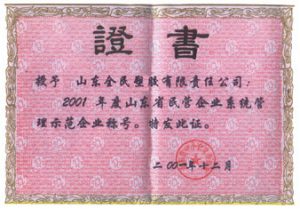 證書
授予 山东全民塑胶有限责任公司：
2001 年度山东省民营企业系统管
理示范企业称号。特发此证。
二〇〇一年十二月